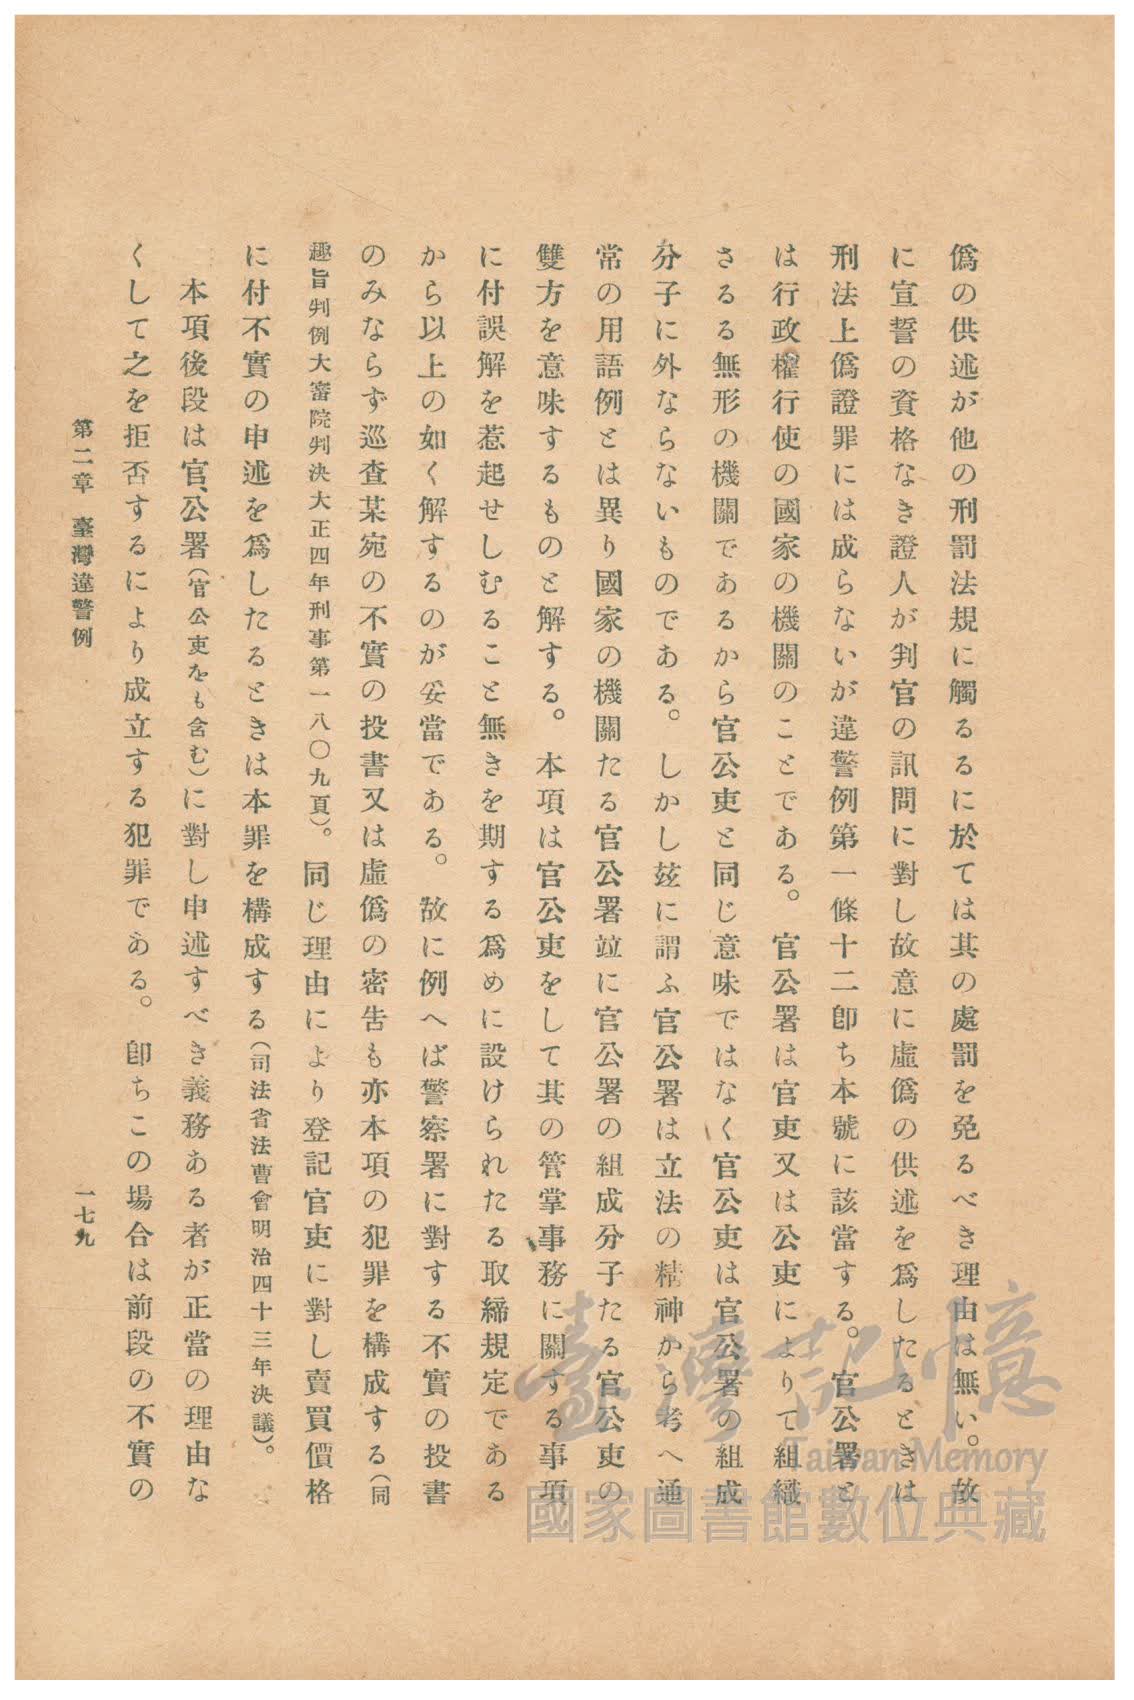 僞の供述が他の刑罰法規に觸るるに於ては其の處罰を免るべき理由は無い。故
に宣誓の資格なき證人が判官の訊問に對し故意に虛僞の供述を爲したるときは
刑法上僞證罪には成らないが違警例第一條十二卽ち本號に該當する。官公署と
は行政權行使の國家の機關のことである。官公署は官吏又は公吏によりて組織
さるる無形の機關であるから官公吏と同じ意味ではなく官公吏は官公署の組成
分子に外ならないものである。しかし玆に謂ふ官公署は立法の精神から考へ通
常の用語例とは異り國家の機關たる官公署竝に官公署の組成分子たる官公吏の
雙方を意味するものと解する。本項は官公吏をして其の管掌事務に關する事項
に付誤解を惹起せしむること無きを期する爲めに設けられたる取締規定である
から以上の如く解するのが妥當である。故に例へば警察署に對する不實の投書
のみならず巡査某宛の不實の投書又は虛僞の密吿も亦本項の犯罪を構成する(同
趣旨判例大審院判決大正四年刑事第一八〇九頁)。同じ理由により登記官吏に對し賣買價格
に付不實の申述を爲したるときは本罪を構成する(司法省法曹會明治四十三年決議)。
本項後段は官、公署(官公吏をも含む)に對し申述すべき義務ある者が正當の理由な
くして之を拒否するにより成立する犯罪である。卽ちこの場合は前段の不實の
第二章 臺灣違警例
一七九
臺灣記憶
Taiwan Memory
國家圖書館數位典藏